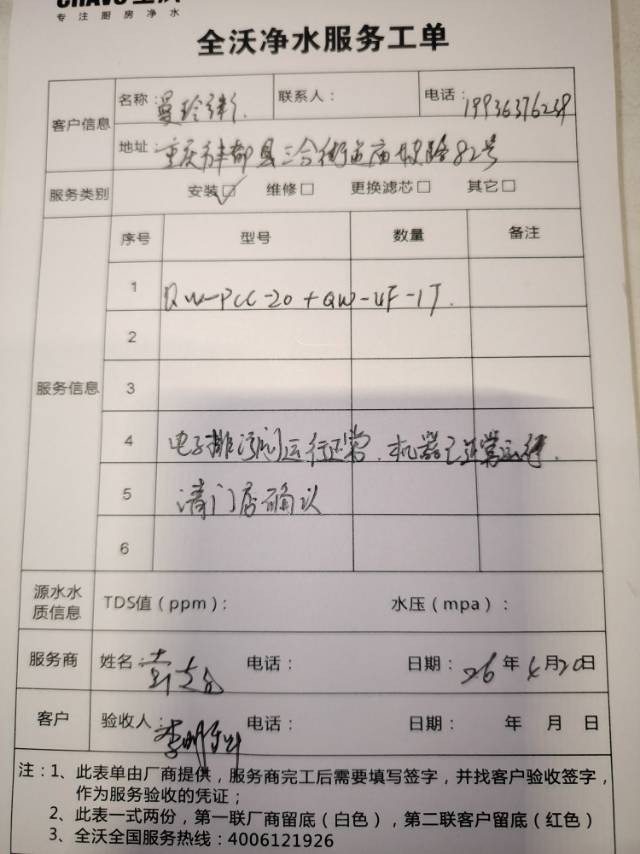 专注厨房净水
全沃净水服务工单
客户信息
名称：曼玲粥
联系人：
电话：19936376239
地址：重庆市丰都县三合街道庙坝路82号
服务类别
安装☑ 维修□ 更换滤芯□ 其它□
服务信息
序号 型号 数量 备注
1 QW-PCC-20+QW-UF-1T
2
3
4 电子排污阀运行正常、机器已正常运行
5 请门店确认
6
源水水质信息
TDS值（ppm）： 水压（mpa）：
服务商 姓名： 电话： 日期：26年4月20日
客户 验收人： 电话： 日期： 年 月 日
注：1、此表单由厂商提供，服务商完工后需要填写签字，并找客户验收签字，
作为服务验收的凭证；
2、此表一式两份，第一联厂商留底（白色），第二联客户留底（红色）
3、全沃全国服务热线：4006121926